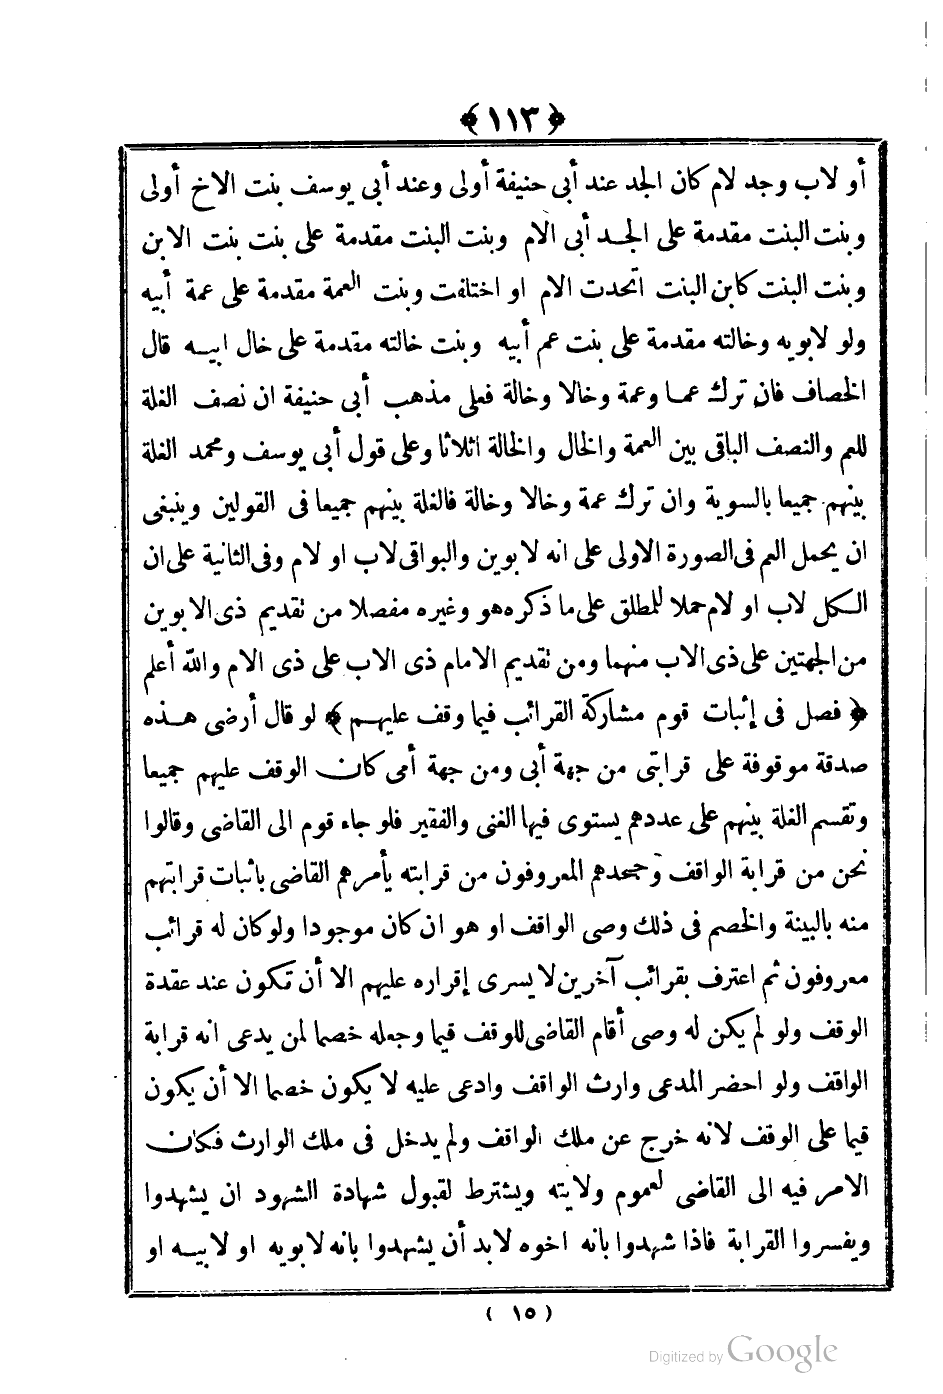 ﴿ ١١٣ ﴾
أو لاب وجد لام كان الجد عند أبى حنيفة أولى وعند أبى يوسف بنت الاخ أولى
وبنت البنت مقدمة على الجد أبى الام وبنت البنت مقدمة على بنت بنت الابن
وبنت البنت كابن البنت اتحدت الام او اختلفت وبنت العمة مقدمة على عمة أبيه
ولو لابويه وخالته مقدمة على بنت عم أبيه وبنت خالته مقدمة على خال ابيه قال
الخصاف فان ترك عما وعمة وخالا وخالة فعلى مذهب أبى حنيفة ان نصف الغلة
للعم والنصف الباقى بين العمة والخال والخالة اثلاثا وعلى قول أبى يوسف ومحمد الغلة
بينهم جميعا بالسوية وان ترك عمة وخالا وخالة فالغلة بينهم جميعا فى القولين وينبغى
ان يحمل العم فى الصورة الاولى على انه لابوين والبواقى لاب او لام وفى الثانية على ان
الكل لاب او لام حملا للمطلق على ما ذكره هو وغيره مفصلا من تقديم ذى الابوين
من الجهتين على ذى الاب منهما ومن تقديم الامام ذى الاب على ذى الام والله أعلم
﴿ فصل فى إثبات قوم مشاركة القرائب فيما وقف عليهم ﴾ لو قال أرضى هذه
صدقة موقوفة على قرابتى من جهة أبى ومن جهة أمى كان الوقف عليهم جميعا
وتقسم الغلة بينهم على عددهم يستوى فيها الغنى والفقير فلو جاء قوم الى القاضى وقالوا
نحن من قرابة الواقف وجحدهم المعروفون من قرابته يأمرهم القاضى باثبات قرابتهم
منه بالبينة والخصم فى ذلك وصى الواقف او هو ان كان موجودا ولو كان له قرائب
معروفون ثم اعترف بقرائب آخرين لا يسرى إقراره عليهم الا أن تكون عند عقدة
الوقف ولو لم يكن له وصى أقام القاضى للوقف قيما وجعله خصما لمن يدعى انه قرابة
الواقف ولو احضر المدعى وارث الواقف وادعى عليه لا يكون خصما الا أن يكون
قيما على الوقف لانه خرج عن ملك الواقف ولم يدخل فى ملك الوارث فكان
الامر فيه الى القاضى لعموم ولايته ويشترط لقبول شهادة الشهود ان يشهدوا
ويفسروا القرابة فاذا شهدوا بانه اخوه لابد أن يشهدوا بانه لابويه او لابيه او
( ١٥ )
Digitized by Google